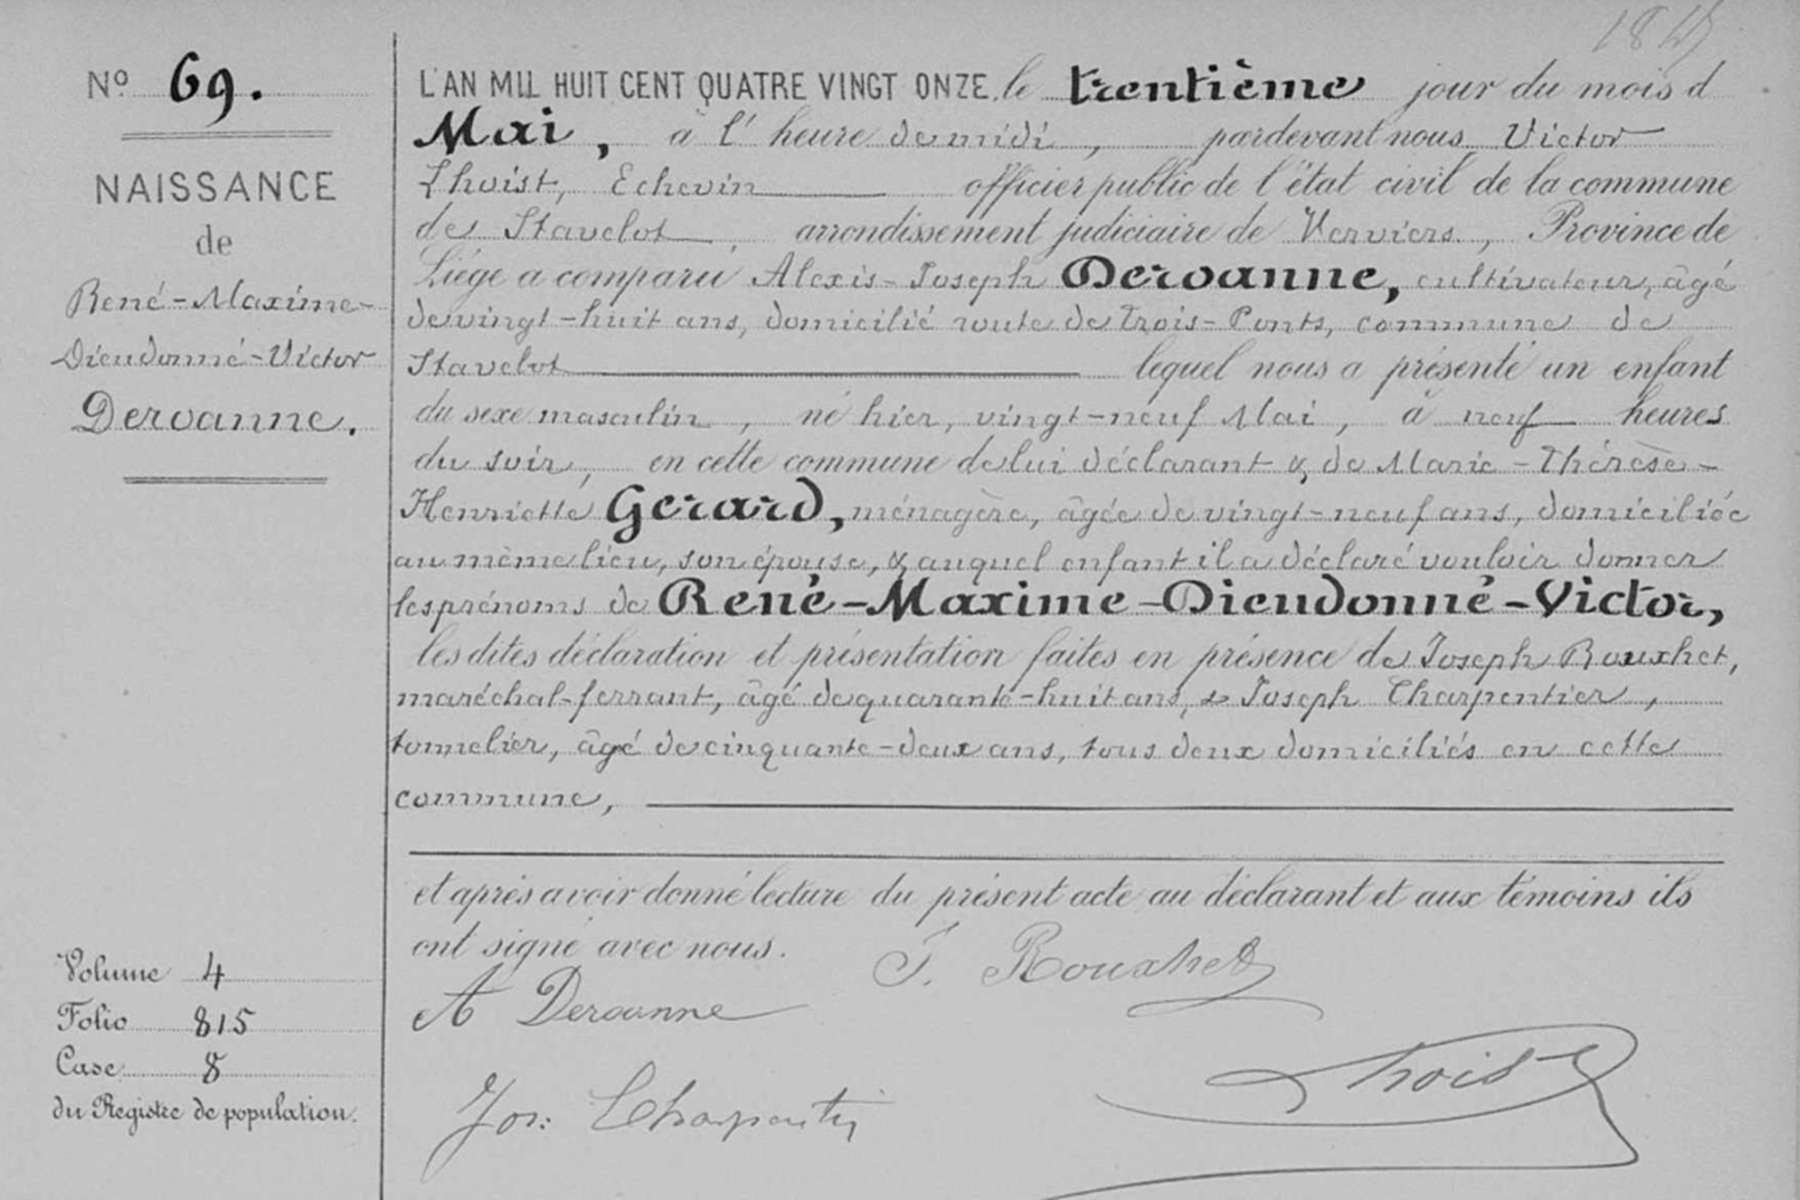 Nº 69.
NAISSANCE
de
René-Maxime-
Dieudonné-Victor
Deroanne.
Volume 4
Folio 815
Case 8
du Registre de population.
L'AN MIL HUIT CENT QUATRE VINGT ONZE, le trentième jour du mois d
Mai, à l'heure de midi, pardevant nous Victor
Lhoist, Echevin officier public de l'état civil de la commune
de Stavelot, arrondissement judiciaire de Verviers, Province de
Liége a comparu Alexis-Joseph Deroanne, cultivateur, âgé
de vingt-huit ans, domicilié route de Trois-Ponts, commune de
Stavelot lequel nous a présenté un enfant
du sexe masculin, né hier, vingt-neuf Mai, à neuf heures
du soir, en cette commune de lui déclarant & de Marie-Thérèse-
Henriette Gerard, ménagère, âgée de vingt-neuf ans, domiciliée
au même lieu, son épouse, & auquel enfant il a déclaré vouloir donner
les prénoms de René-Maxime-Dieudonné-Victor,
les dites déclaration et présentation faites en présence de Joseph Rouxhet,
maréchal-ferrant, âgé de quarante-huit ans, & Joseph Charpentier,
tonnelier, âgé de cinquante-deux ans, tous deux domiciliés en cette
commune,
et après avoir donné lecture du présent acte au déclarant et aux témoins ils
ont signé avec nous. J. Rouxhet
A Deroanne
Lhoist
Jos. Charpentier